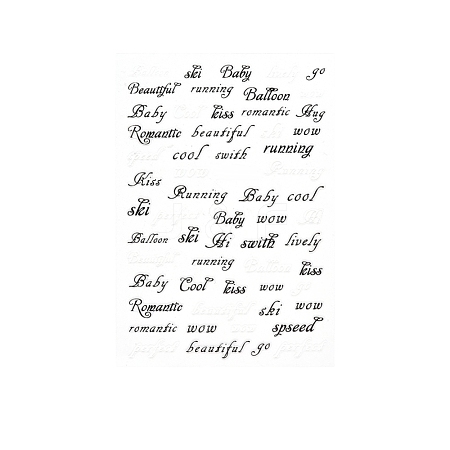 ski Baby go
Beautiful running Balloon
Baby kiss romantic Hug
Romantic beautiful wow
cool swith running
Kiss
Running Baby cool
ski
Baby wow
Balloon ski Hi swith lively
running
kiss
Baby Cool kiss wow
Romantic ski wow
romantic wow spseed
beautiful go